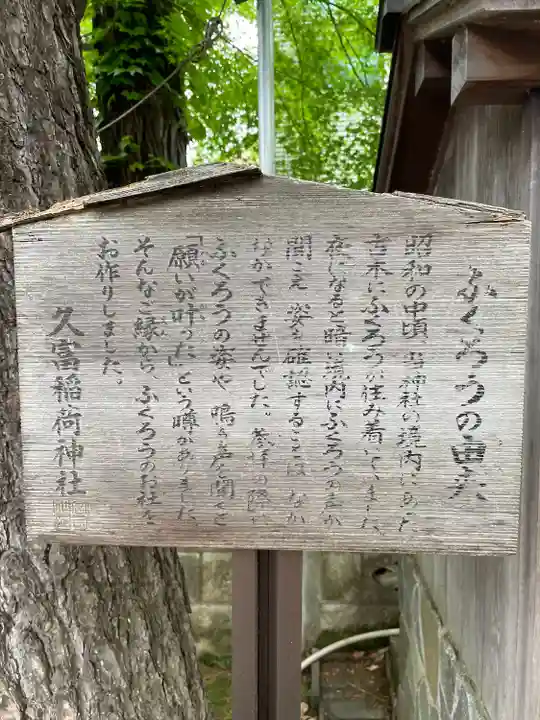 ふくろうの由来
昭和の中頃、当神社の境内にあった
古木にふくろうが住み着いていました。
夜になると暗い境内にふくろうの声が
聞こえ 姿を確認することは なか
なかできませんでした。参拝の際に
ふくろうの姿や、鳴き声を聞くと
「願いが叶った」という噂がありました。
そんなご縁から、ふくろうのお社を
お作りしました。
久富稲荷神社